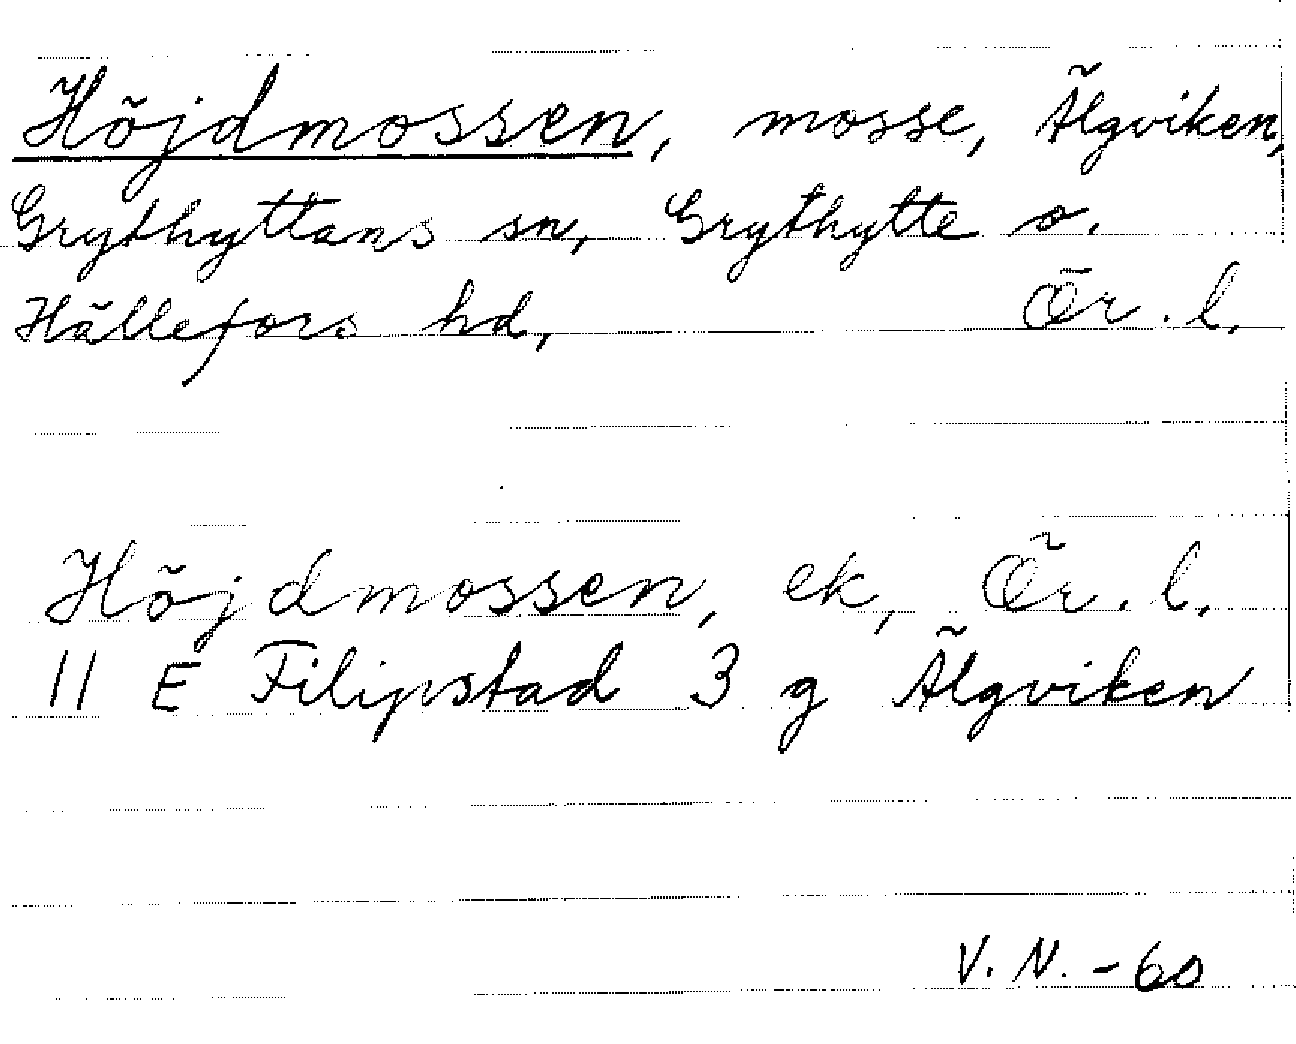 Höjdmossen, mosse, Älgviken,
Grythyttans sn, Grythytte o.
Hällefors hd, Ör. l.
Höjdmossen, ek, Ör. l.
11 E Filipstad 3 g Älgviken
V. N. - 60